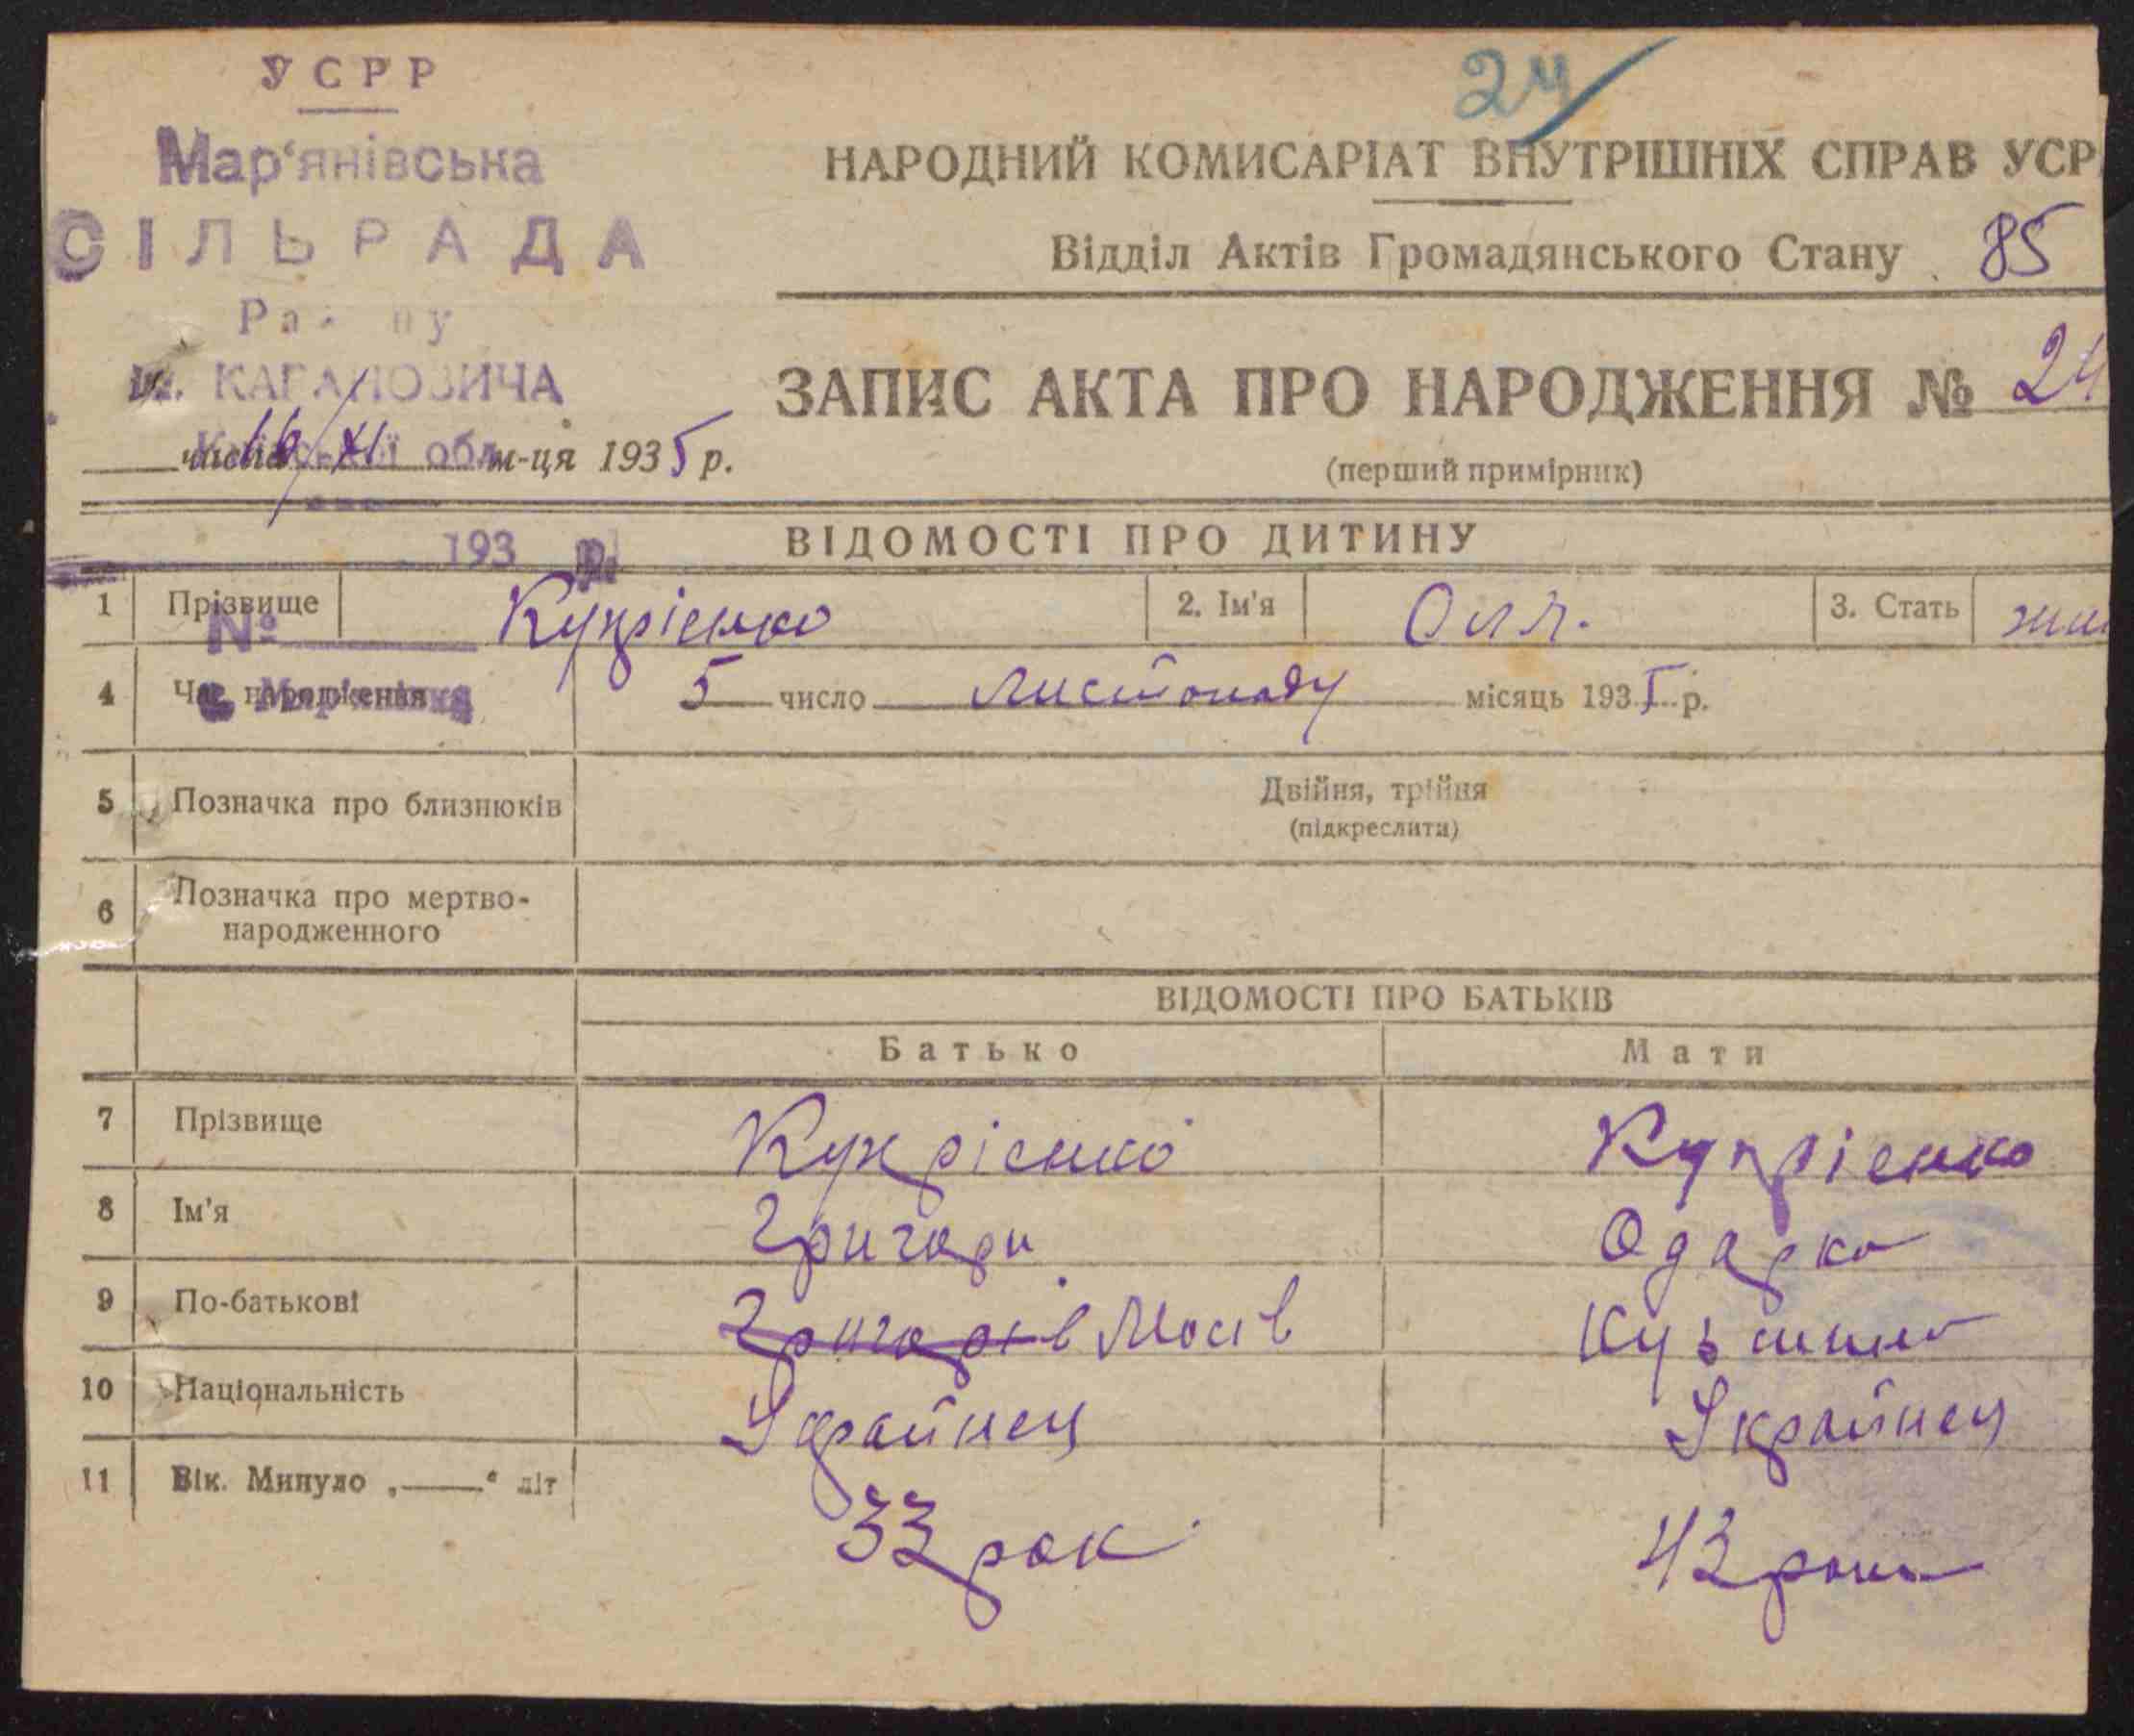 УСРР
Мар'янівська
СІЛЬРАДА
КАГАНОВИЧА
16/XI м-ця 1935 р.
193 р.
№
24
НАРОДНИЙ КОМИСАРІАТ ВНУТРІШНІХ СПРАВ УСР
Відділ Актів Громадянського Стану 85
ЗАПИС АКТА ПРО НАРОДЖЕННЯ № 24
(перший примірник)
ВІДОМОСТІ ПРО ДИТИНУ
1 Прізвище Купрієнко 2. Ім'я Оля. 3. Стать
4 Час народження 5 число Листопаду місяць 1935 р.
5 Позначка про близнюків Двійня, трійня
(підкреслити)
6 Позначка про мертво-
народженного
ВІДОМОСТІ ПРО БАТЬКІВ
Батько Мати
7 Прізвище Купрієнко Купрієнко
8 Ім'я Григори Одарка
9 По-батькові Григорів Мосів
10 Національність Українец Українец
11 Вік. Минуло „——“ літ 33 рок 43 роки